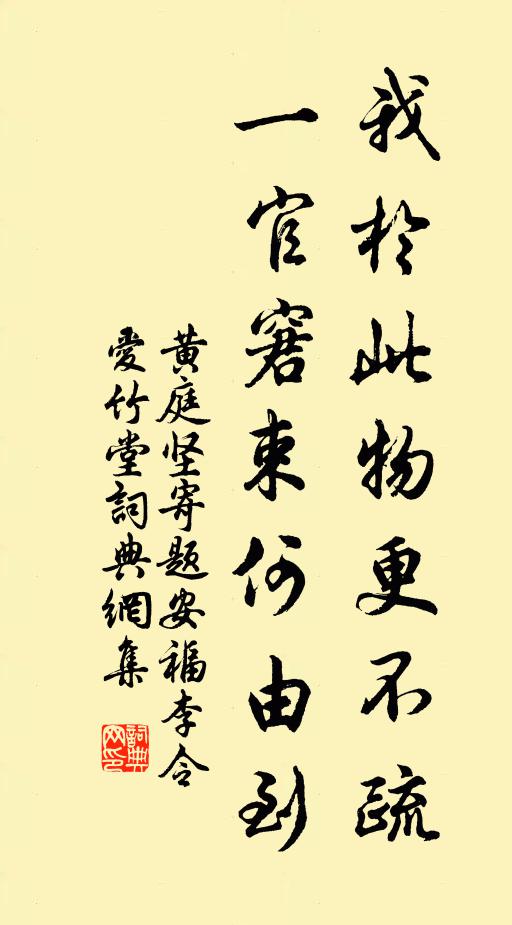 我於此物更不疏
一官窘束何由到
黄庭坚寄题安福李令
爱竹堂詞典網集
詞典网印